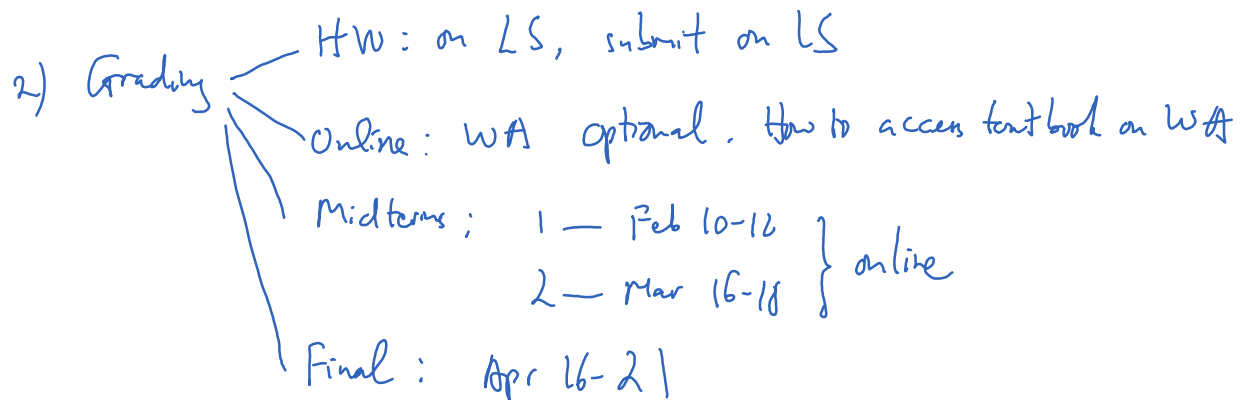 2) Grading
HW : on LS, submit on LS
Online : WA optional. How to access textbook on WA
Midterms ; 1 — Feb 10-12
2 — Mar 16-18
} online
Final : Apr 16-21